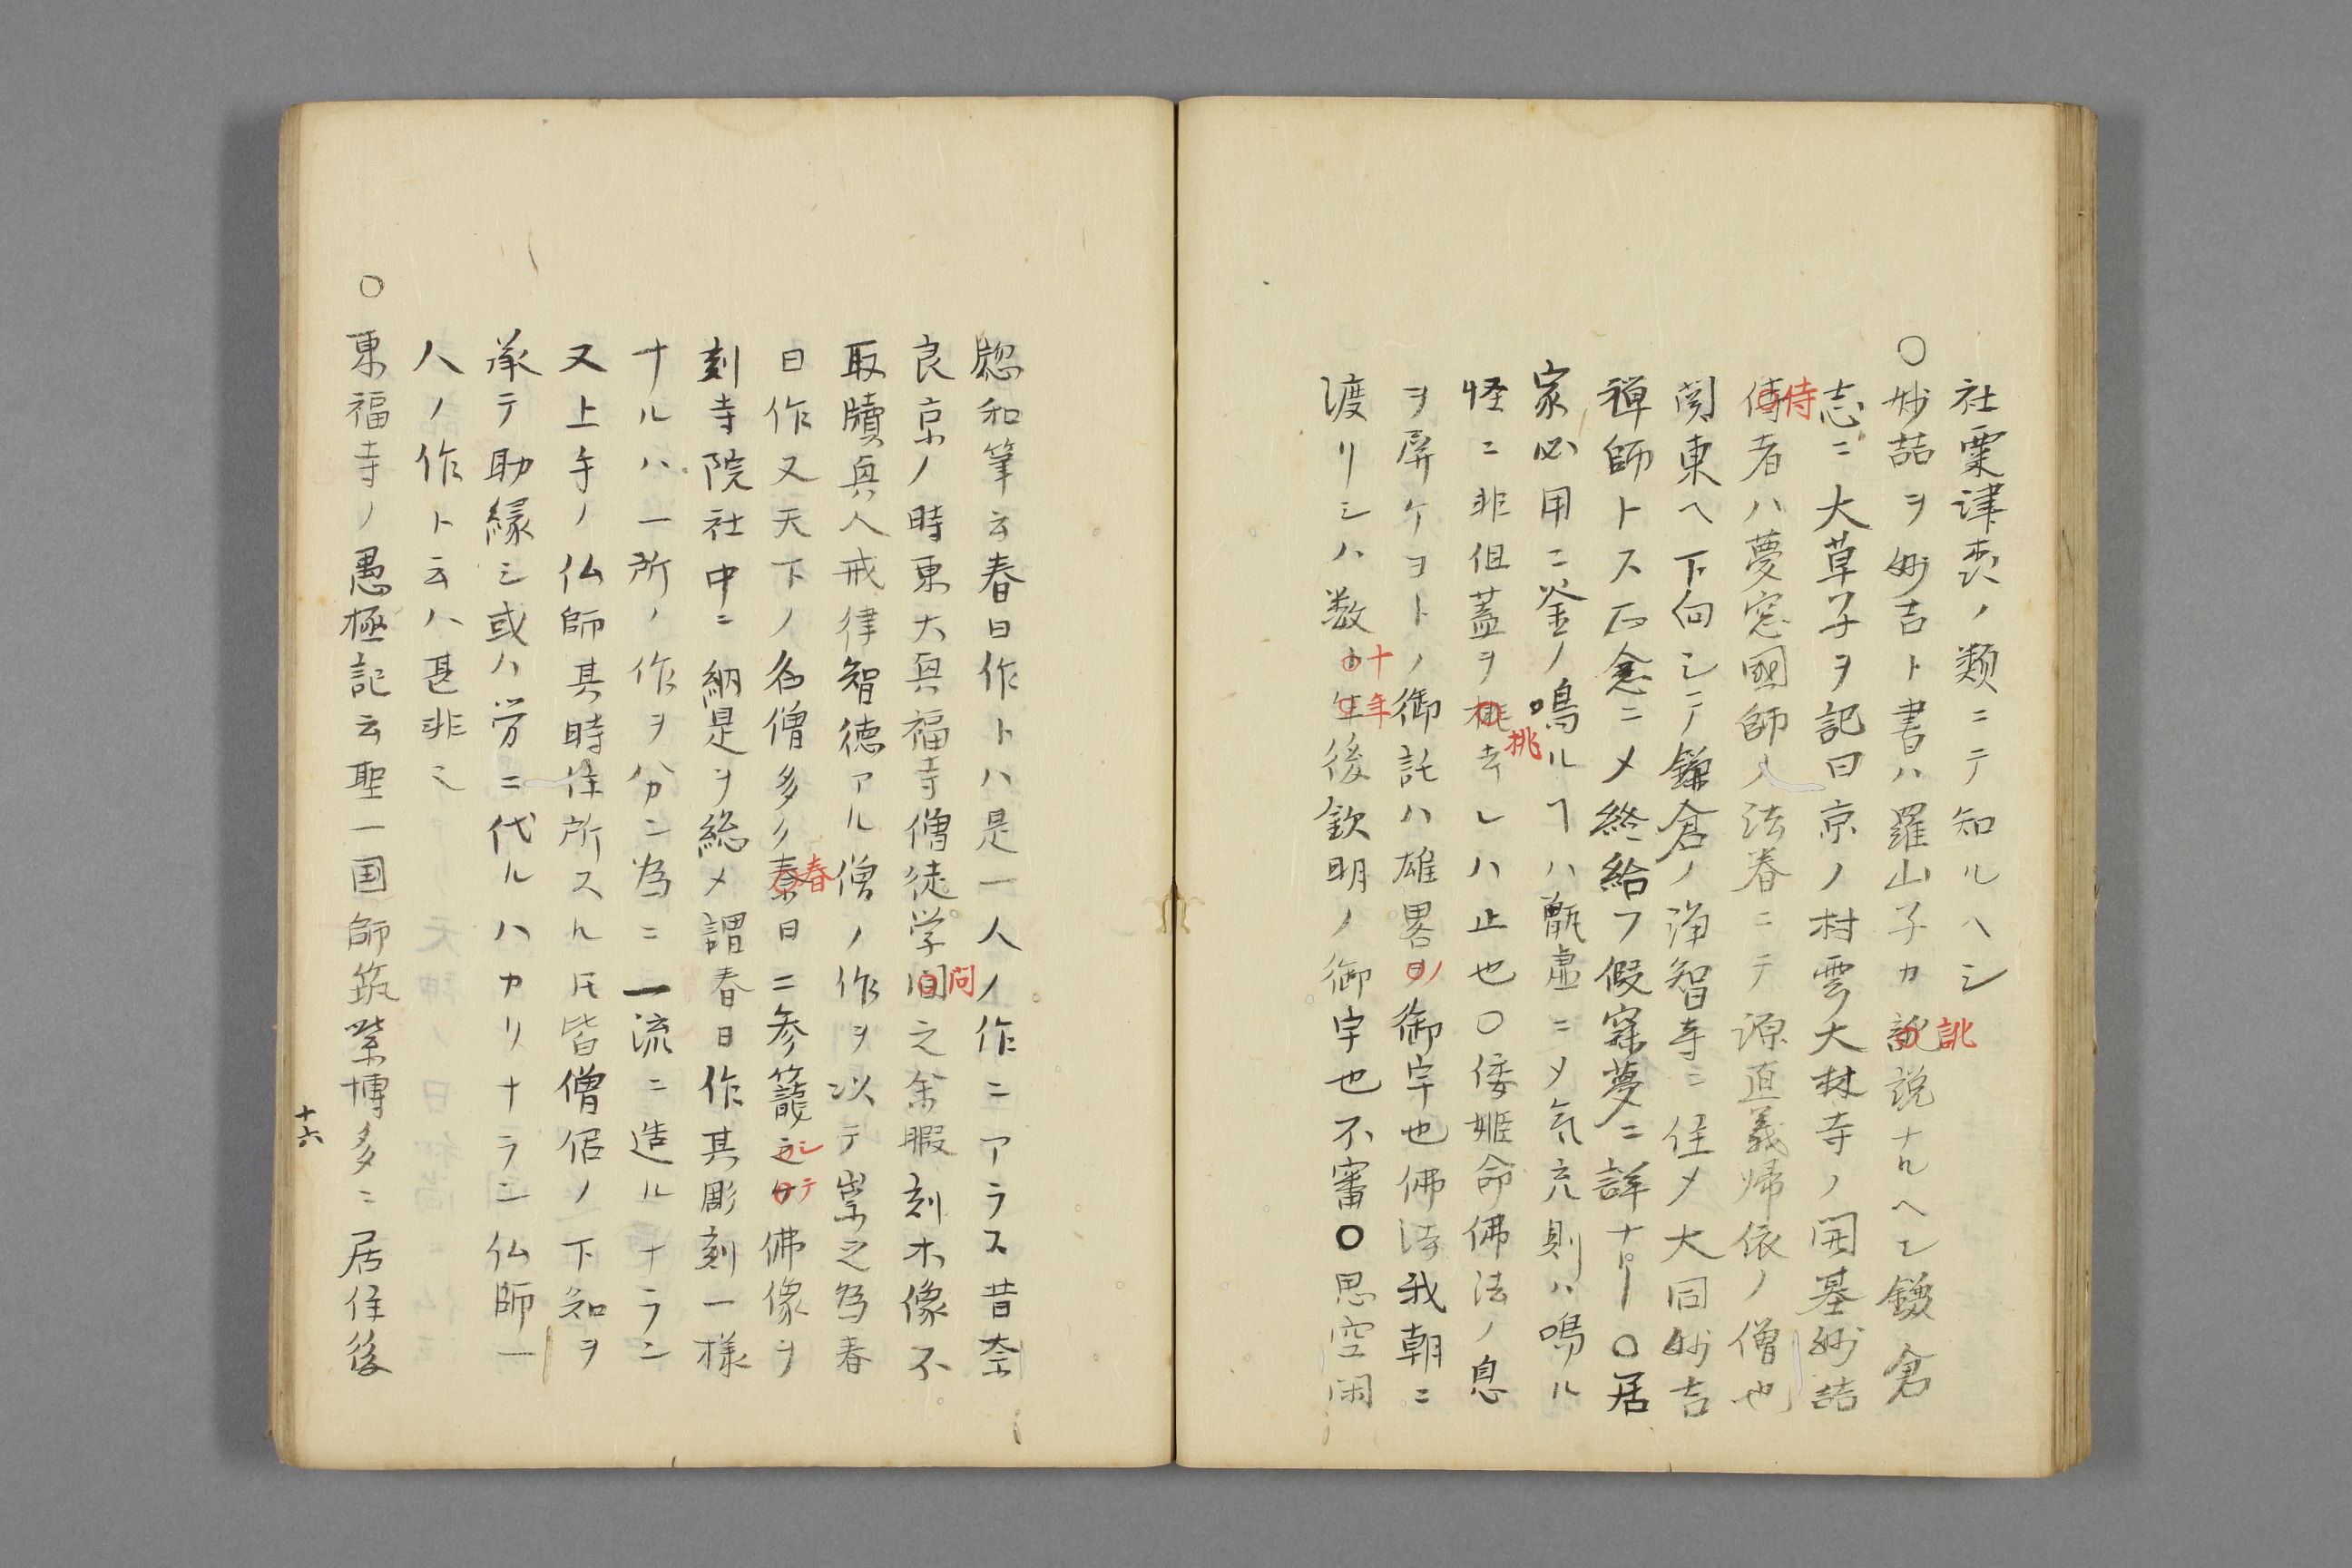 社粟津森ノ類ニテ知ルヘシ
○妙喆ヲ妙吉ト書ハ羅山子カ訛説ナルヘシ鎌倉
訛
志ニ大草子ヲ記曰京ノ村雲大林寺ノ開基妙喆
侍者ハ夢窓國師ノ法眷ニテ源直義帰依ノ僧也
侍
関東ヘ下向シテ鎌倉ノ浄智寺ニ住メ大同妙吉
禅師トス正念ニメ終給フ假寐夢ニ詳ナリ○居
家必用ニ釜ノ鳴ルヿハ甑虚ニメ気充則ハ鳴ル
怪ニ非但蓋ヲ桃去レハ止也○倭姫命佛法ノ息
挑
ヲ屏ケヨトノ御託ハ雄畧ヲ御宇也佛法我朝ニ
ノ
渡リシハ数カ生後欽明ノ御宇也不審○思空閑
十年
愡和筆云春日作トハ是一人ノ作ニアラス昔奈
良京ノ時東大興福寺僧徒学間之余暇刻木像不
問
取牘與人戒律智徳アル僧ノ作ヲ以テ崇之為春
日作又天下ノ名僧多ク秦日ニ参籠 佛像ヲ
春
シテ
刻寺院社中ニ納是ヲ総メ謂春日作其彫刻一様
ナルハ一所ノ作ヲ分ニ為ニ一流ニ造ルナラン
又上手ノ仏師其時住所スルトモ皆僧侶ノ下知ヲ
承テ助縁シ或ハ労ニ代ルハカリナラン仏師一
人ノ作ト云ハ甚非也
○東福寺ノ愚極記云聖一国師筑紫博多ニ居住後
十六